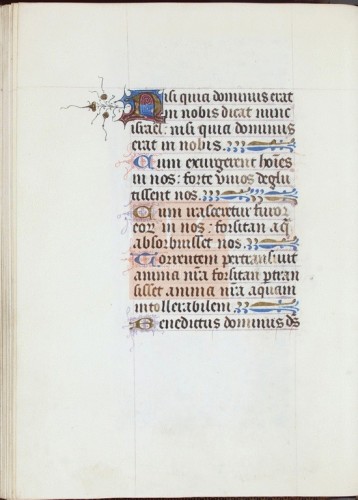 Nisi quia dominus erat
in nobis dicat nunc
israel: nisi quia dominus
erat in nobis.
Cum exurgerent hoīes
in nos: forte viuos deglu
tissent nos.
Cum irasceretur furor
eorū in nos: forsitan aq̄
absorbuisset nos.
Torrentem pertransiuit
anima nr̄a forsitan ptran
sisset anima nr̄a aquam
intollerabilem.
Benedictus dominus ds̄